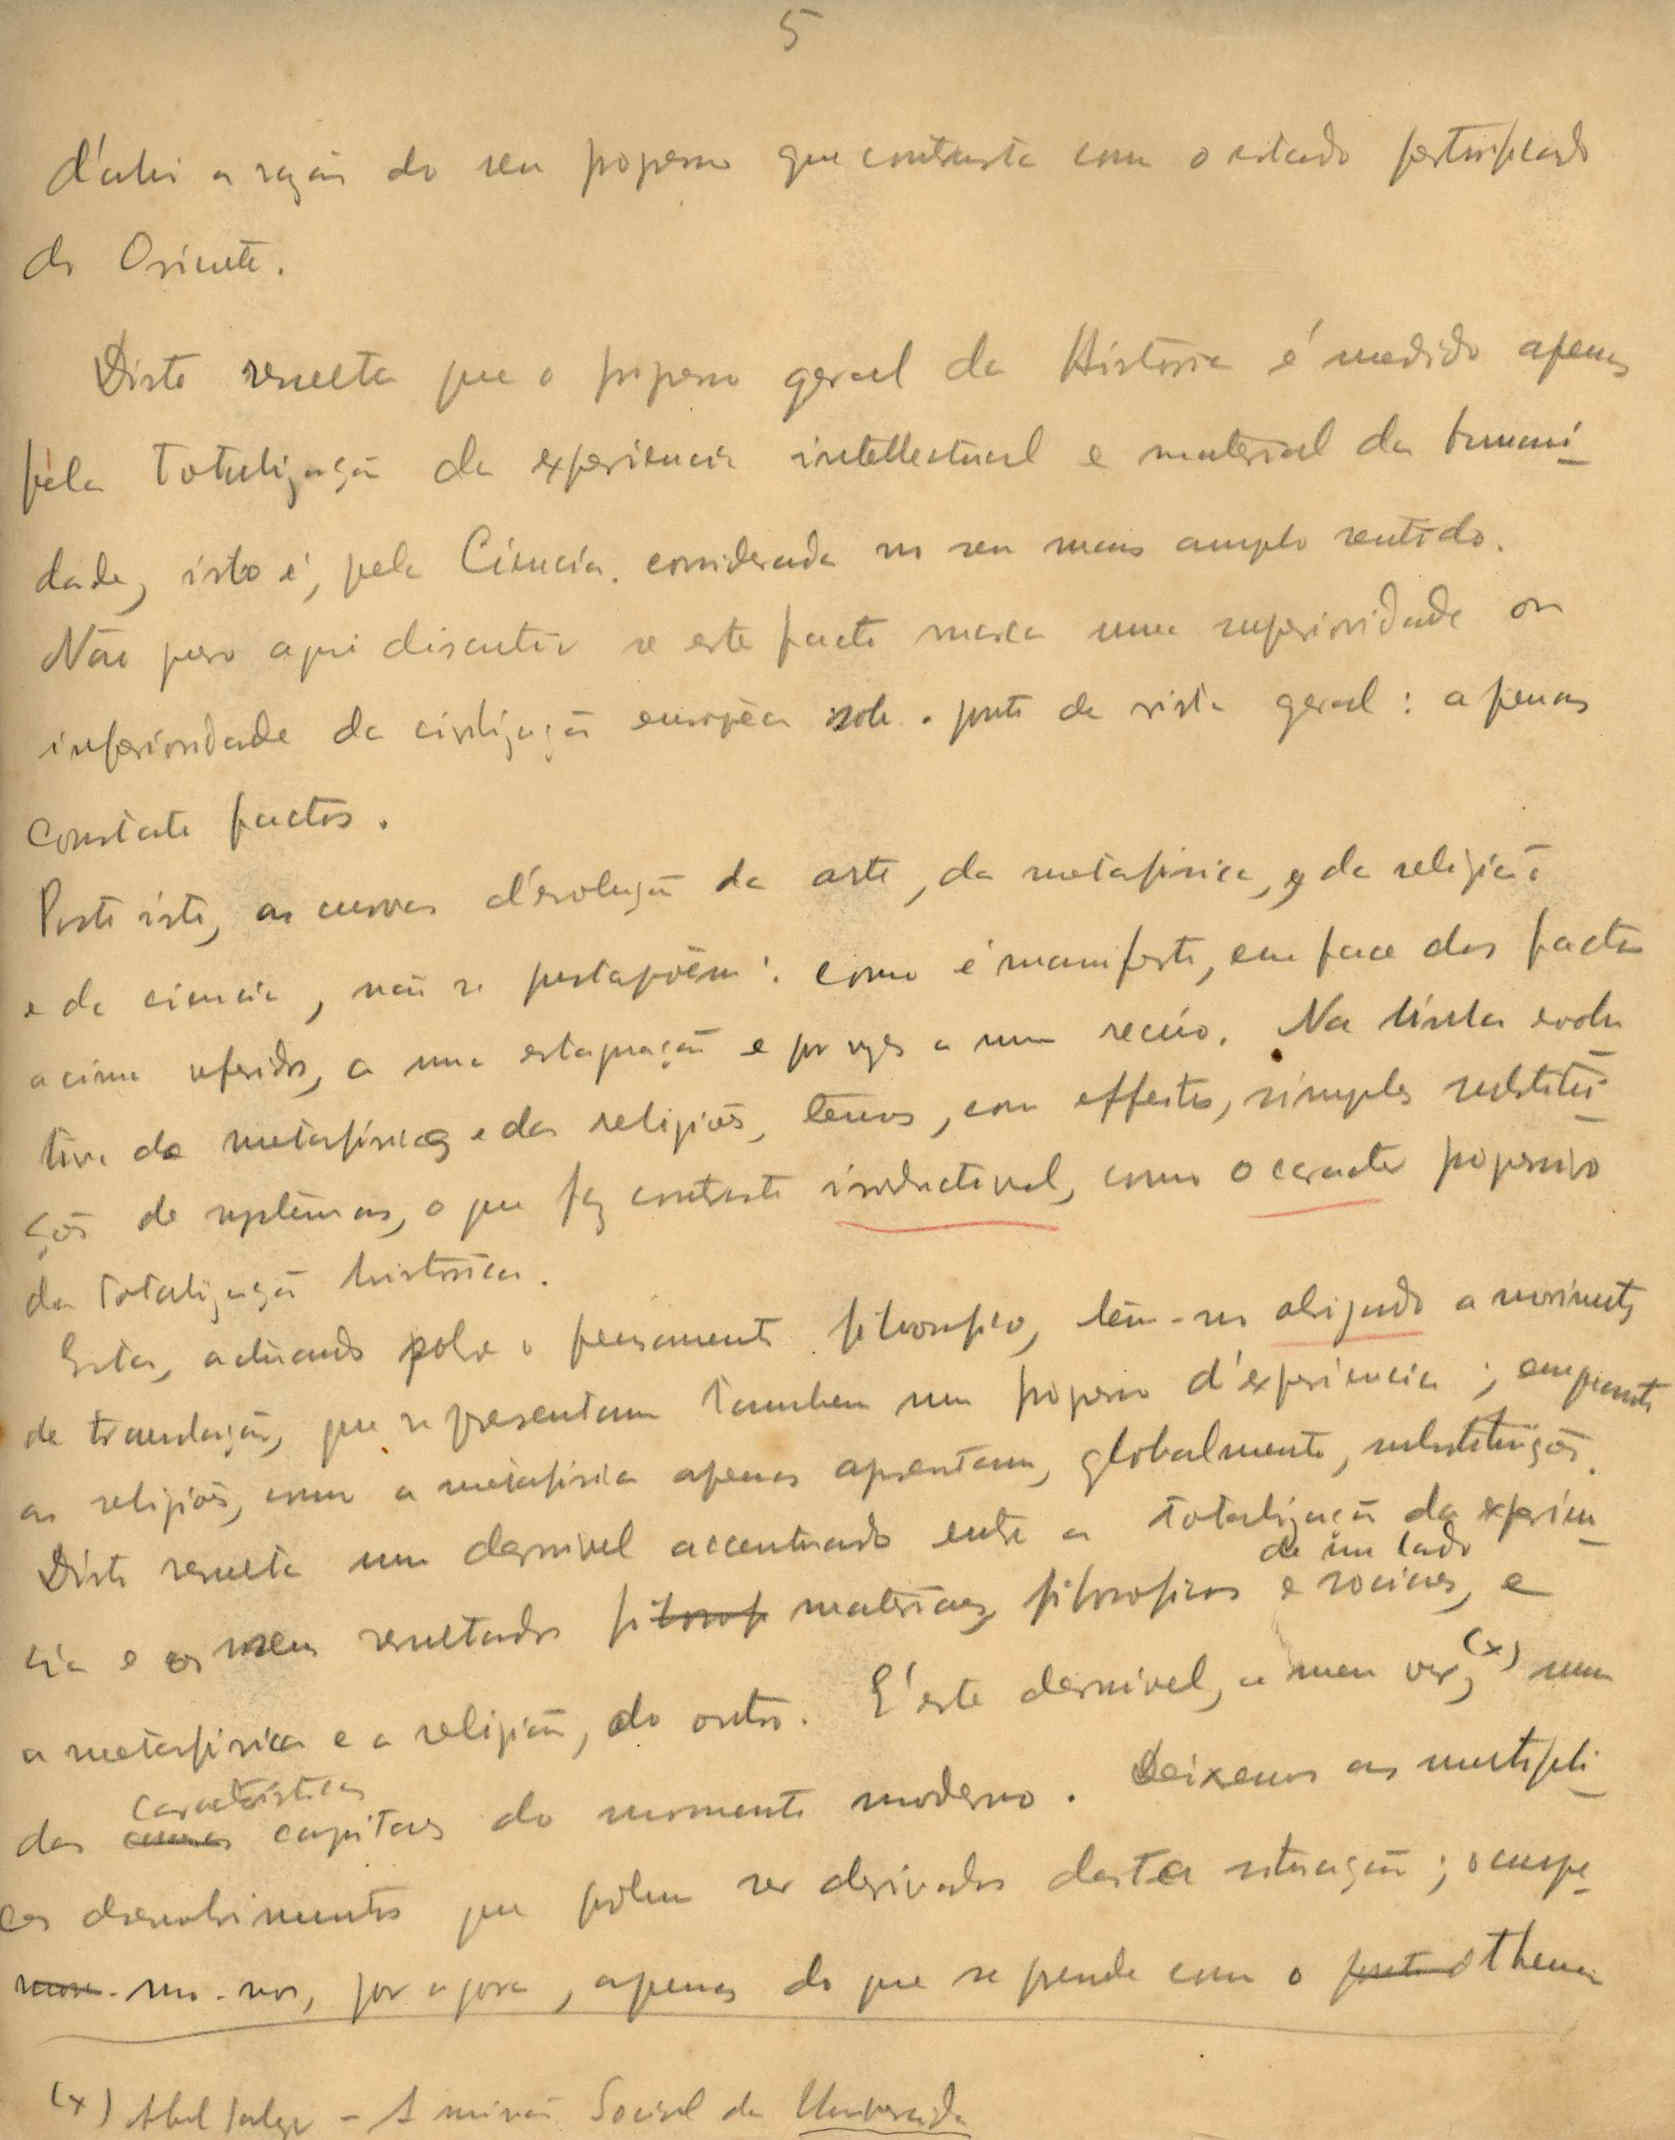 5
d'ahi a razão do seu progresso que contrasta com o estado
do Oriente.
Disto resulta que o progresso geral da Historia é medido apenas
pela totalização da experiencia intellectual e material da humani-
dade, isto é, pela Ciencia, considerada no seu mais amplo sentido.
Não quero aqui discutir se este facto marca uma superioridade ou
inferioridade da civilização européa sob o ponto de vista geral: apenas
constato factos.
Posto isto, as curvas d'evolução da arte, da metafisica, e da religião
e da ciencia, não se justapõem: como é manifesto, em face dos factos
acima referidos, a uma estagnação e por vezes a um recúo. Na linha evolu
tiva da metafísica e das religiões, temos, com effeito, simples substitui-
ções de systemas, o que faz contraste com o caracter progressivo
da totalização historica.
Esta, actuando sobre o pensamento filosofico, tem-no obrigado a movimentos
de translação, que representam tambem um progresso d'experiencia; emquanto
as religiões, como a metafisica apenas apresentam, globalmente, substituições.
Disto resulta um desnivel accentuado entre a totalização da experien-
de um lado
cia e os seus resultados filosof materiaes, filosoficos e sociaes, e
a metafisica e a religião, do outro. E' este desnivel, a meu ver, (x) uma
caracteristicas
das capitaes do momento moderno. Deixemos as multipli-
ces desenvolvimentos que podem ser derivados desta situação; occupe-
mo-nos, por agora, apenas do que se prende com o thema
(x) Abel Salazar - A missão Social da Universida